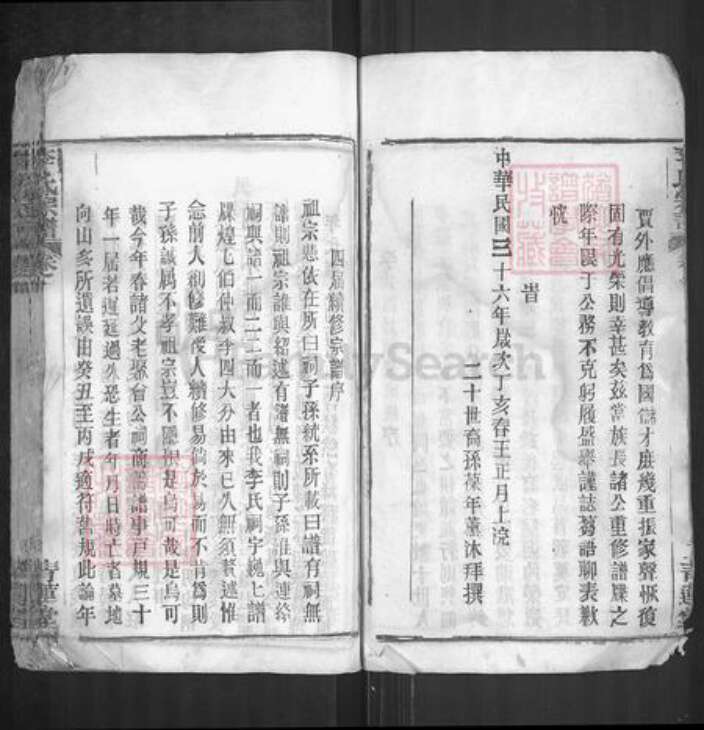 賈外應倡導教育爲國儲才庶幾重振家聲恢復
固有光榮則幸甚矣茲當族長諸公重修譜牒之
際年限于公務不克躬履盛舉謹誌芻語聊表歉
忱
旹
中華民國三十六年歲次丁亥春王正月上浣
二十世裔孫葆年薰沐拜撰
四屆續修宗譜序
祖宗憑依在所曰祠子孫統系所載曰譜有祠無
譜則祖宗誰與紹述有譜無祠則子孫誰與連絡
祠與譜一而二二而一者也我李氏祠宇巍七譜
牒煌七伯仲叔季四大分由來已久無須贅述惟
念前人創修難後人續修易倘於易而不肯爲則
子孫誠屬不孝祖宗豈不隱恨是烏可哉是烏可
哉今年春諸父老懸省公祠商議譜事戶規三十
年一屆若遲延過久恐生者年月日時亡者墓地
向山多所遺誤由癸丑至丙戌適符舊規此論年
李氏宗譜
青蓮堂
FamilySearch